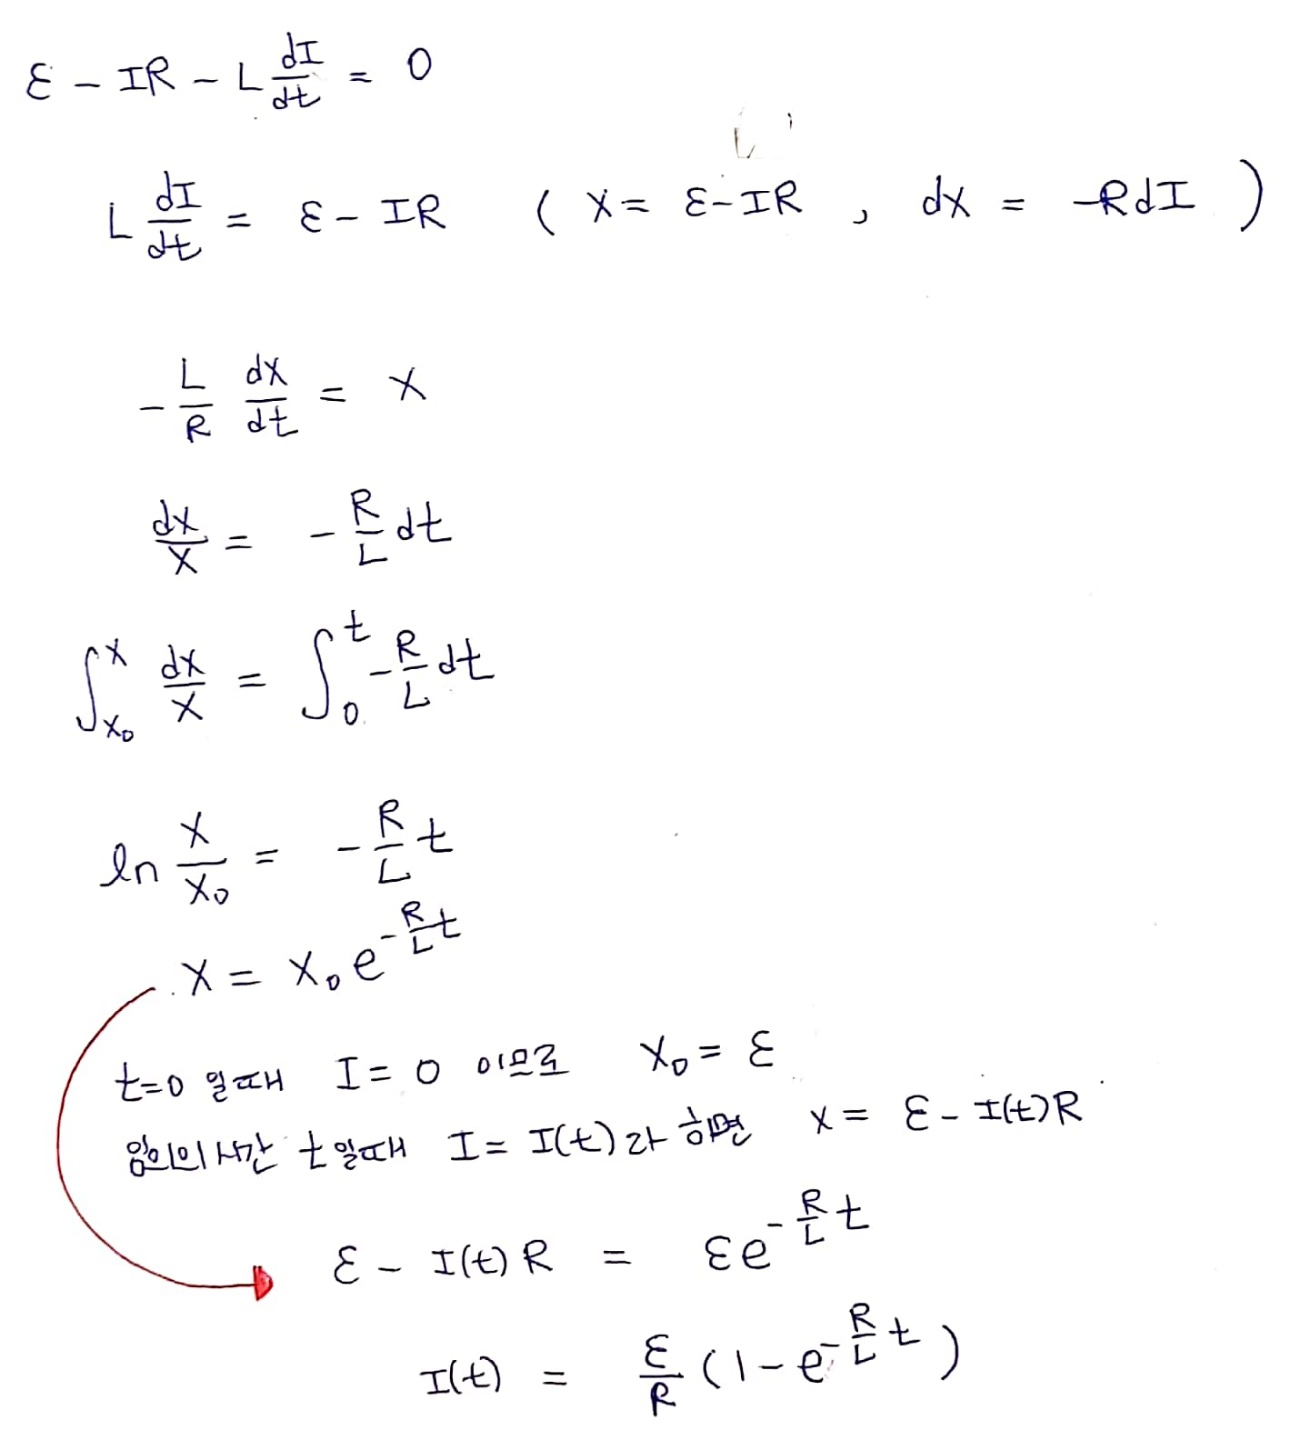 ε - IR - L dI/dt = 0
L dI/dt = ε - IR ( X = ε - IR , dX = -RdI )
- L/R dX/dt = X
dX/X = - R/L dt
∫_{X₀}^{X} dX/X = ∫_{0}^{t} - R/L dt
ln X/X₀ = - R/L t
X = X₀ e^{-R/L t}
t=0 일때 I = 0 이므로 X₀ = ε
임의의 시간 t 일때 I = I(t) 라 하면 X = ε - I(t)R
ε - I(t)R = εe^{-R/L t}
I(t) = ε/R (1 - e^{-R/L t})